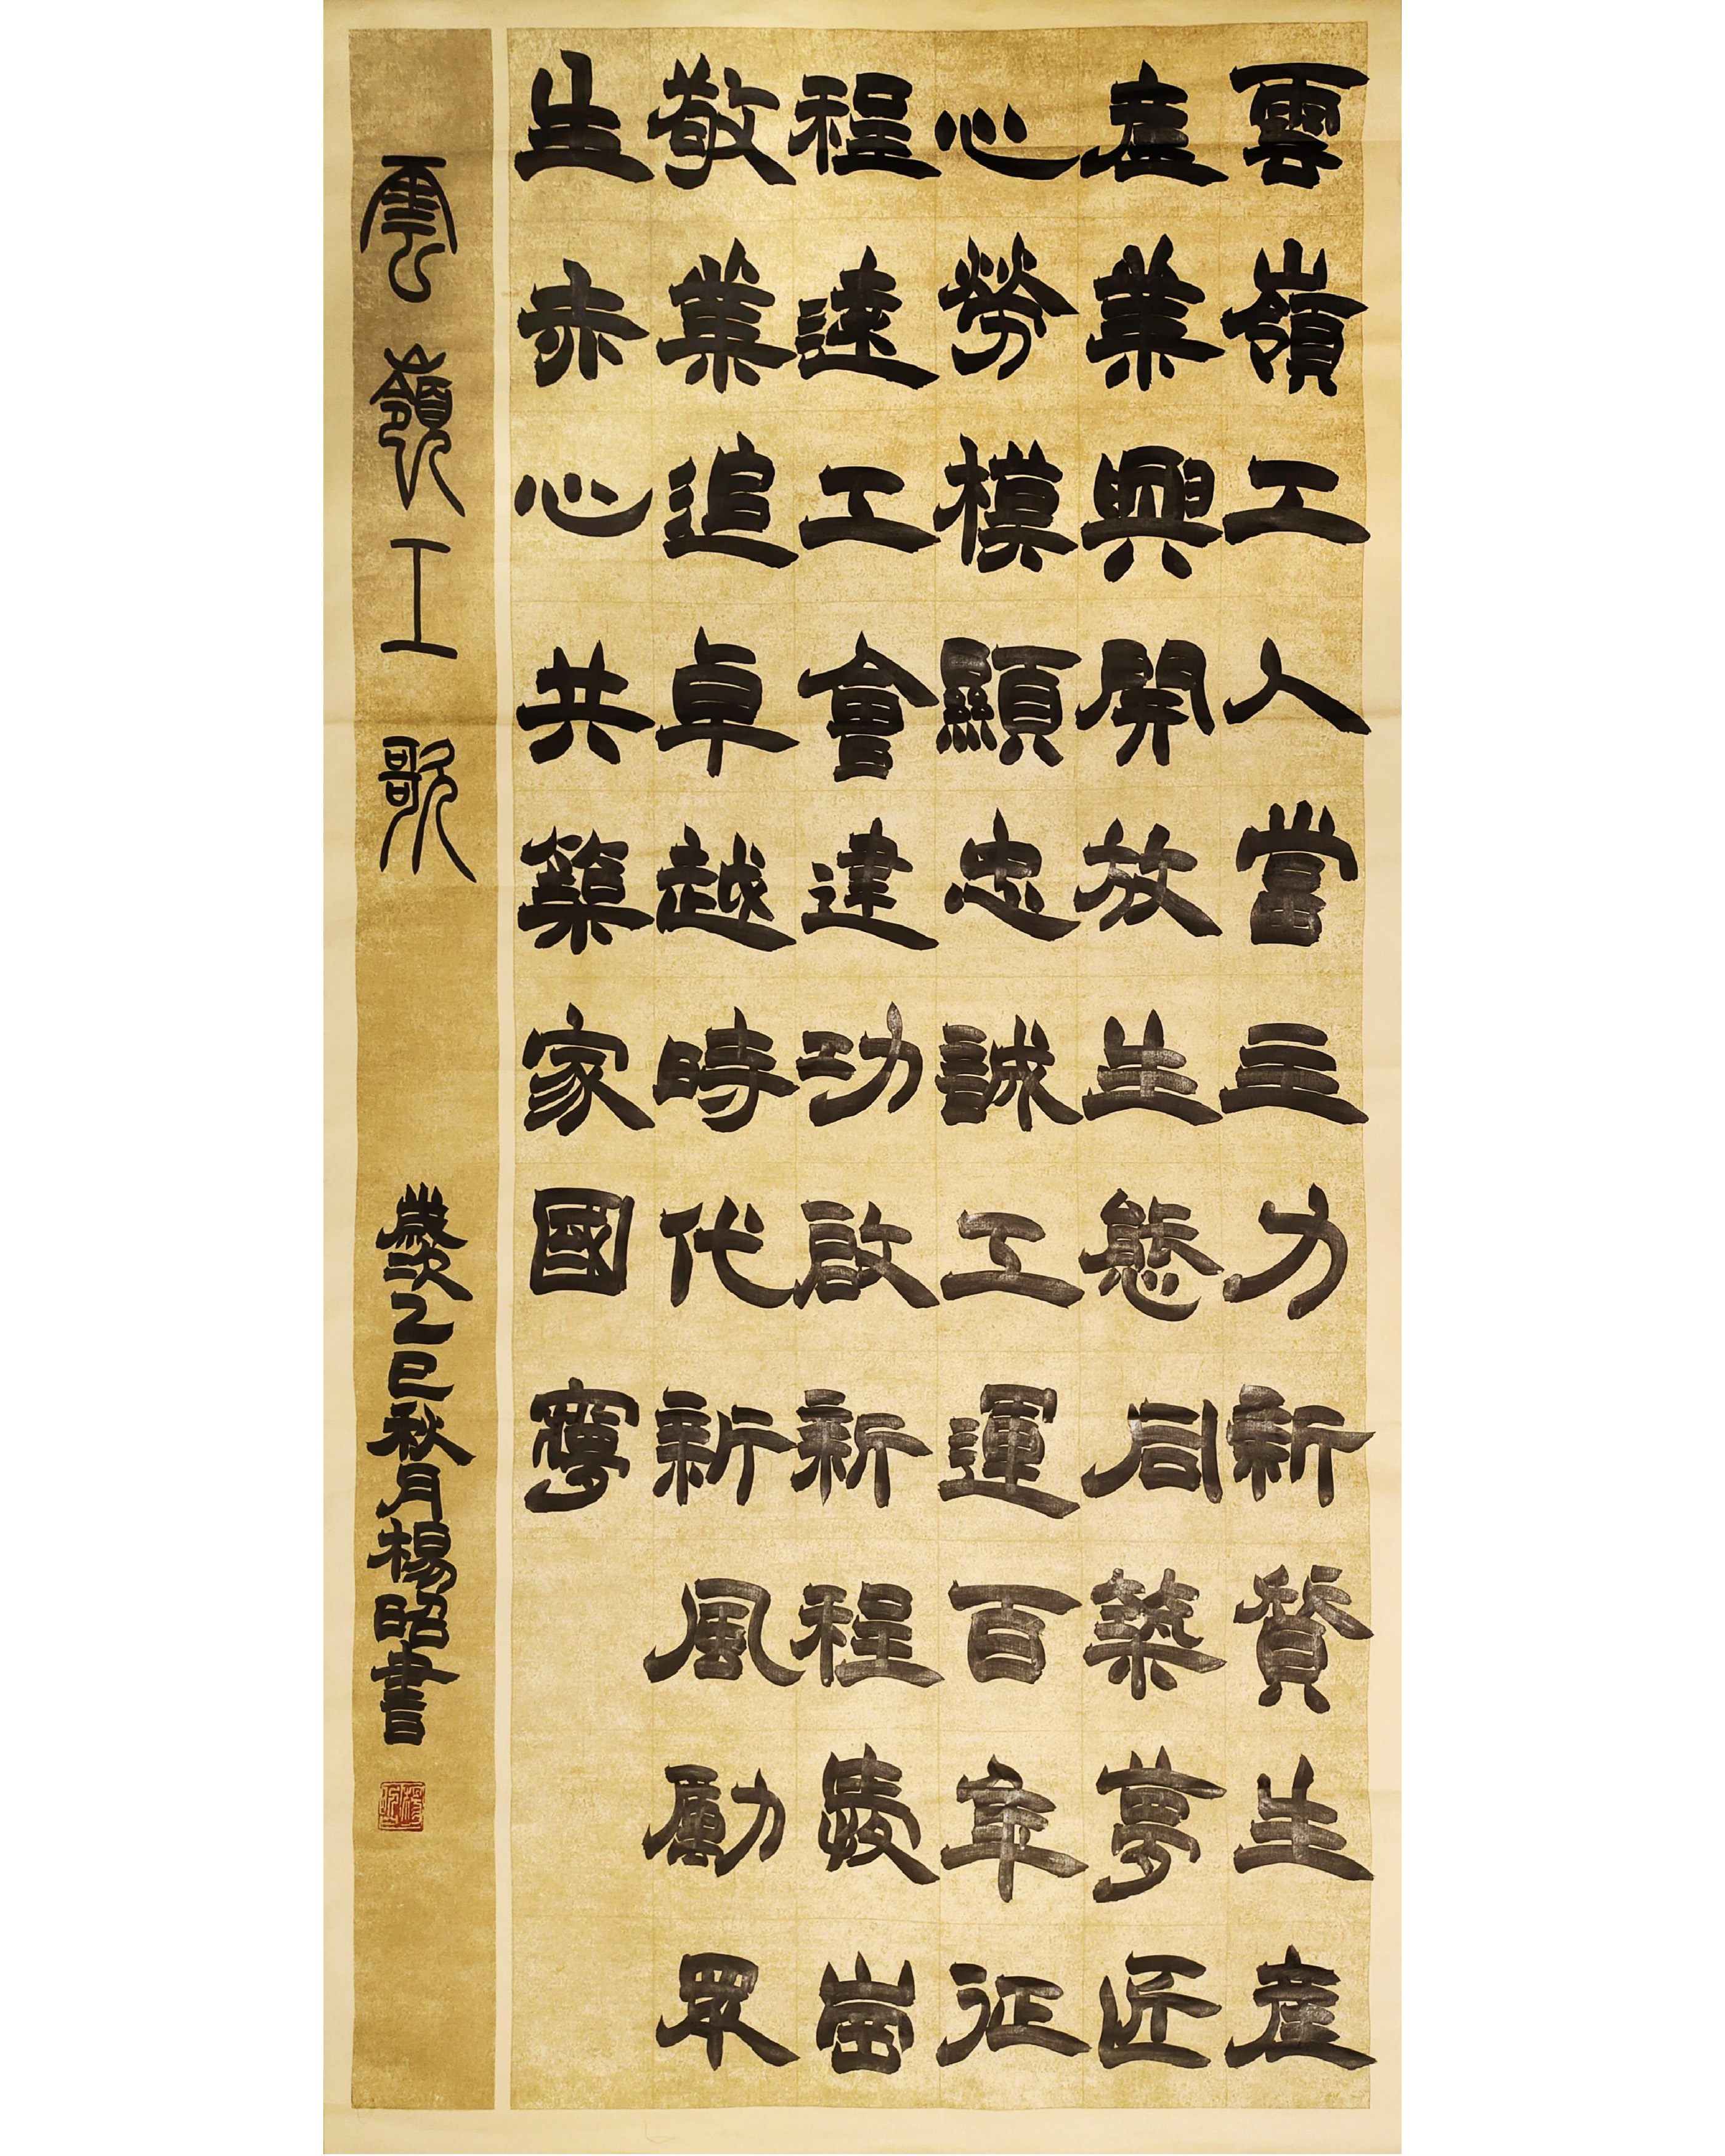 雲嶺工人當主力新質生產
產業興開放生態同築夢匠
心勞模顯忠誠工運百年征
程遠工會建功啟新程愛崗
敬業追卓越時代新風勵眾
生赤心共築家國夢
雲嶺工歌
歲次乙巳秋月楊昭書